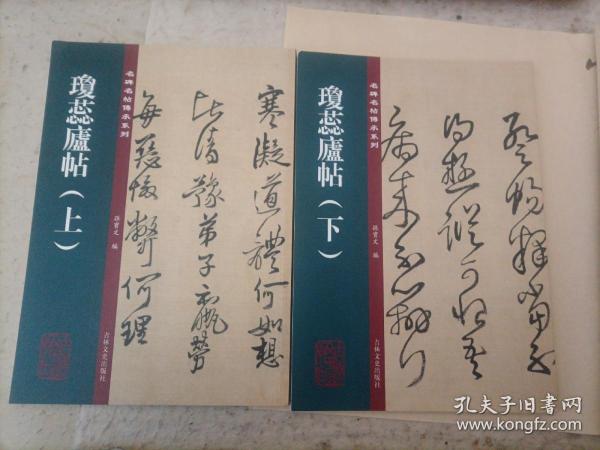 名碑名帖傳承系列
瓊蕊廬帖（上）
孫寶文 編
吉林文史出版社
寒凝道體何如想
比清豫弟子羸勞
每惡倦弊何理
名碑名帖傳承系列
瓊蕊廬帖（下）
孫寶文 編
吉林文史出版社
孔夫子旧书网
www.kongfz.com